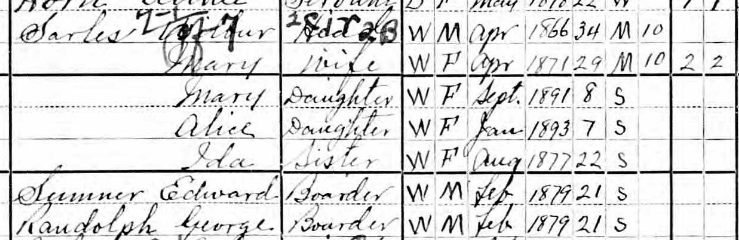 May 1878 22
Sarles Arthur Head W M Apr 1866 34 M 10
Mary Wife W F Apr 1871 29 M 10 2 2
Mary Daughter W F Sept. 1891 8 S
Alice Daughter W F Jan 1893 7 S
Ida Sister W F Aug 1877 22 S
Sumner Edward Boarder W M Feb 1879 21 S
Randolph George Boarder W M Feb 1879 21 S